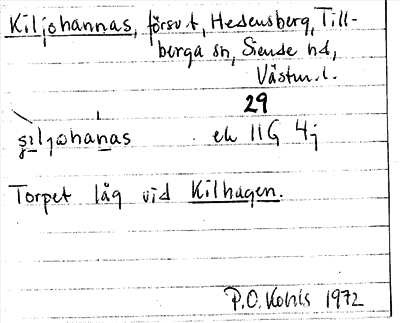 Kiljohannas, försv. t, Hedensberg, Till-
berga sn, Siende hd,
Västm. l.
29
ek 11G 4j
Torpet låg vid Kilhagen.
P.O. Kohls 1972